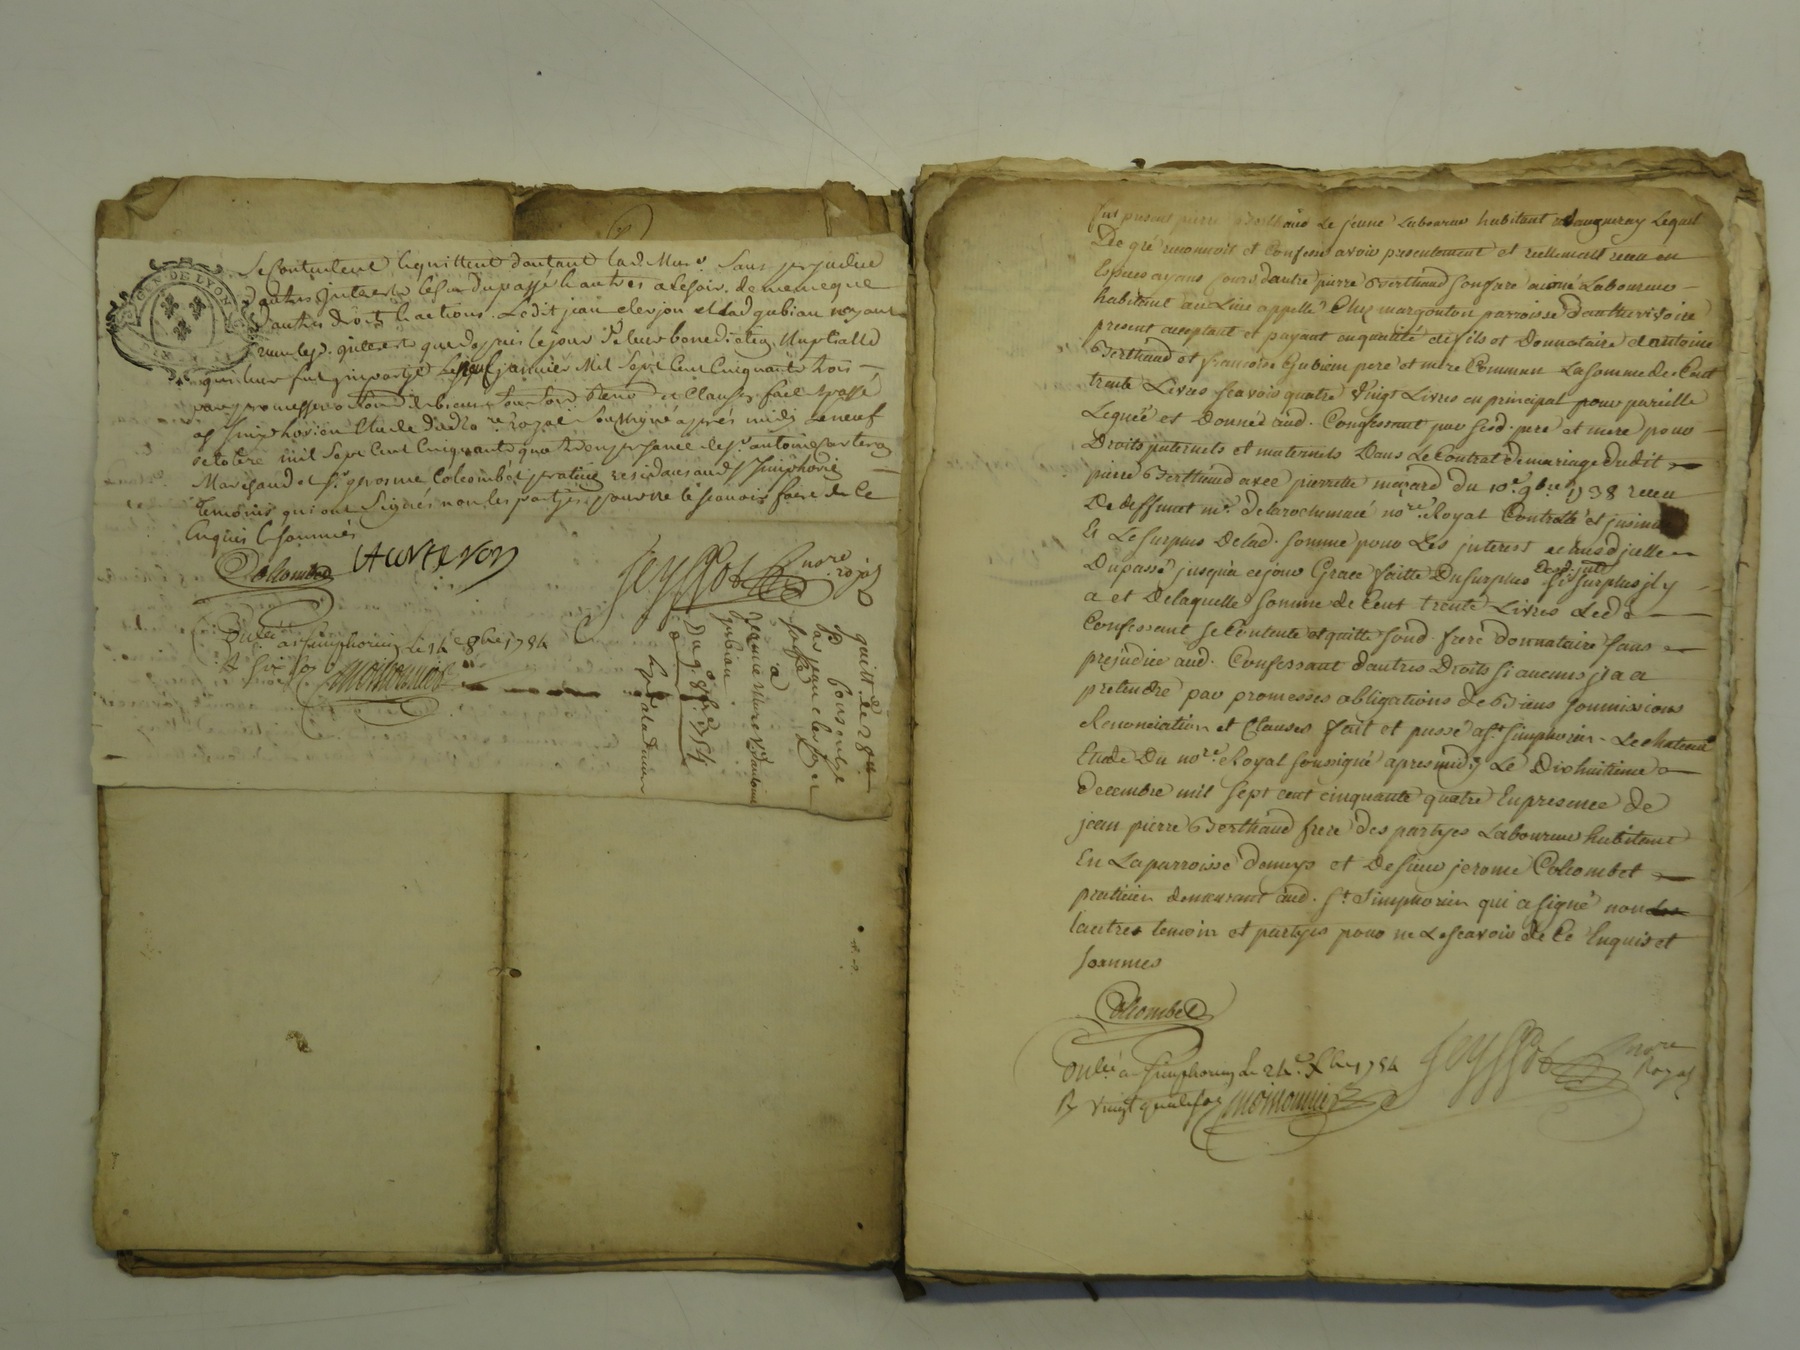 GEN. DE LYON
Se Contentent & quittent dautant lad. Mure. Sans prejudice
dautres interests le Cas du passé & autres a Echoir. de meme que
dautres droits & actions. Ledit jean clerjon et lad gubian n'ayant
qui leur fut impartye le neuf janvier Mil Sept Cent Cinquante trois
par promesses obligations de biens et Clauses fait & passé
a St Simphorien Etude dud no.re royal Soussigné après midi Le neuf
octobre mil Sept Cent Cinquante quatre En presence de Sr antoine
Marchand et Sr jerosme Colcombet praticien residans aud St Simphorien
temoins qui ont Signés non les partyes pour ne le sçavoir faire de Ce
Enquis & sommés
Colcombet
Seyssot no.re royal
Con.lé a St Simphorien le 14e 8bre 1754
R Six sols moinonnier
quitt. de 28
par jean clerjon
a
jeanne mure Ve dantoine
gubian
du 9e 8bre 1754
Fut present pierre Berthaud Le jeune Laboureur habitant Lequel
De gré reconnoit et Confesse avoir presentement et reellement receu en
Especes ayans Cours dautre pierre Berthaud Son frere ainé Laboureur
habitant au Lieu appellé Chez margouton parroisse
present acceptant et payant en quallité de fils et Donnataire dantoine
Berthaud et francoise Gubien pere et mere Commun La Somme de Cent
trente Livres sçavoir quatre Vingt Livres en principal pour pareille
Leguée et Donnée aud. Confessant par sesd. pere et mere pour
Droits paternels et maternels Dans Le Contrat de mariage dudit
pierre Berthaud avec pierrette mazard du 10e 9bre 1738 receu
De deffunt me Delarochemacé no.re Royal Controllé et jnsinué
Et Le Surplus De lad. Somme pour Les jnterest
Du passé jusqua ce jour Grace faitte Du Surplus desd. jnts Si Surplus jl y
a et De laquelle Somme de Cent trente Livres Led.
Confessant Se Contente et quitte Sond. frere donnataire Sans
prejudice aud. Confessant dautres Droits Si aucuns jl a a
pretendre par promesses obligations de Biens Soumissions
Renonciation et Clauses fait et passé a St Simphorien Le chateau
Etude Du no.re Royal Soussigné apres midy Le Dixhuitieme
decembre mil Sept cent cinquante quatre En presence de
jean pierre Berthaud frere des partyes Laboureur habitant
En La parroisse demeys et De Sieur jerome Colcombet
praticien demeurant aud. St Simphorien qui a Signé non
Lautre temoin et partyes pour ne Le sçavoir de Ce Enquis et
Sommes
Colcombet
Seyssot no.re Royal
Con.lé a St Simphorien le 24e Xbre 1754
R Vingt quatre sols moinonnier